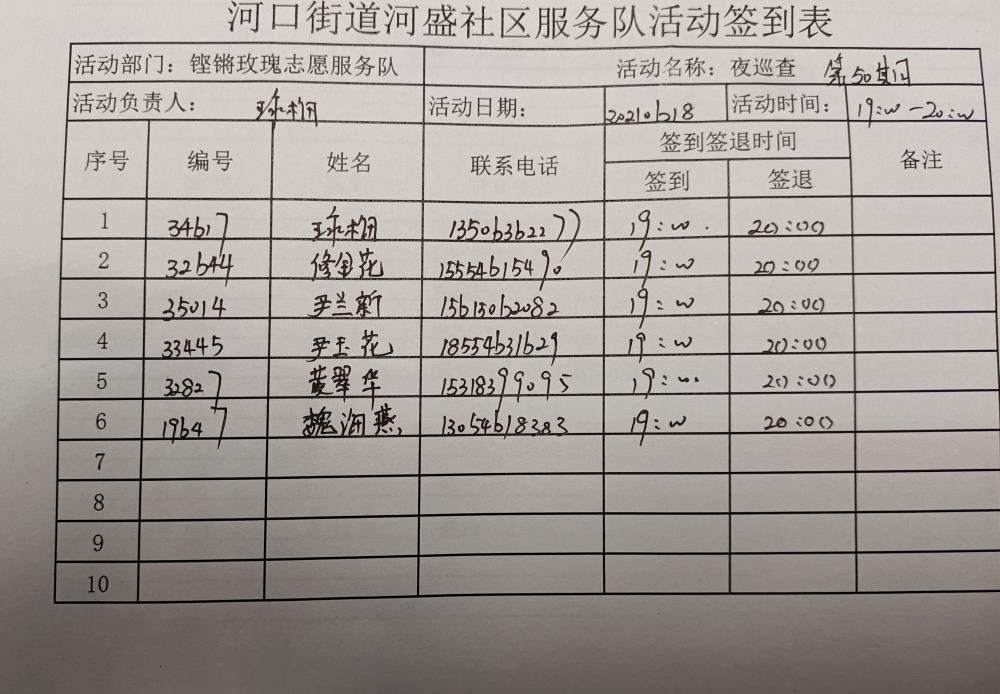 河口街道河盛社区服务队活动签到表
活动部门：铿锵玫瑰志愿服务队 活动名称：夜巡查 第50期
活动负责人： 活动日期： 20210618 活动时间： 19:00-20:00
序号 编号 姓名 联系电话 签到签退时间 备注
签到 签退
1 34617 13506362277 19:00. 20:00
2 32644 修金花 15554615490 19:00 20:00
3 35014 尹兰新 15615062082 19:00 20:00
4 33445 尹玉花 18554631629 19:00 20:00
5 32827 黄翠华 15318399095 19:00. 20:00
6 19647 魏海燕 13054618383 19:00 20:00
7
8
9
10